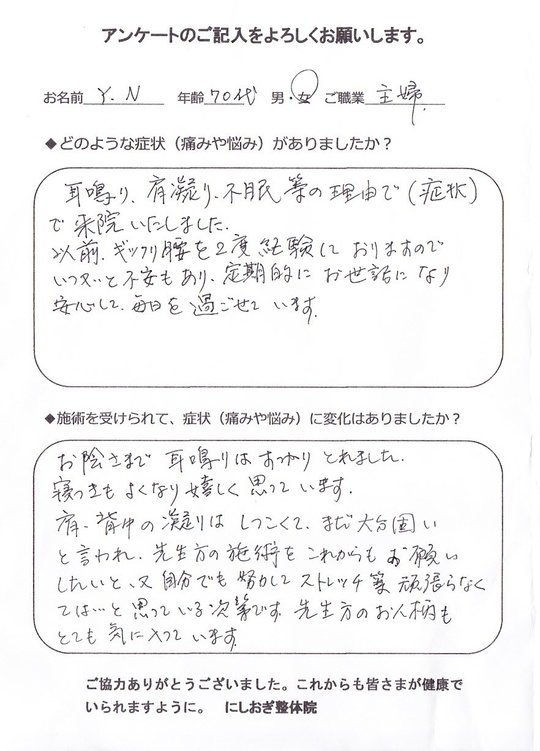 アンケートのご記入をよろしくお願いします。
お名前 Y.N 年齢 70代 男・女 ご職業 主婦
◆どのような症状（痛みや悩み）がありましたか？
耳鳴り、肩凝り、不眠等の理由で（症状）
で来院いたしました。
以前、ギックリ腰を2度経験しておりますので
いつ又…と不安もあり、定期的にお世話になり
安心して、毎日を過ごせています。
◆施術を受けられて、症状（痛みや悩み）に変化はありましたか？
お陰さまで耳鳴りはすっかりとれました。
寝つきもよくなり嬉しく思っています。
肩、背中の凝りはしつこくて、まだ大分固い
と言われ、先生方の施術をこれからもお願い
したいと、又自分でも努力してストレッチ等頑張らなく
ては…と思っている次第です。先生方のお人柄も
とても気に入っています。
ご協力ありがとうございました。これからも皆さまが健康で
いられますように。 にしおぎ整体院